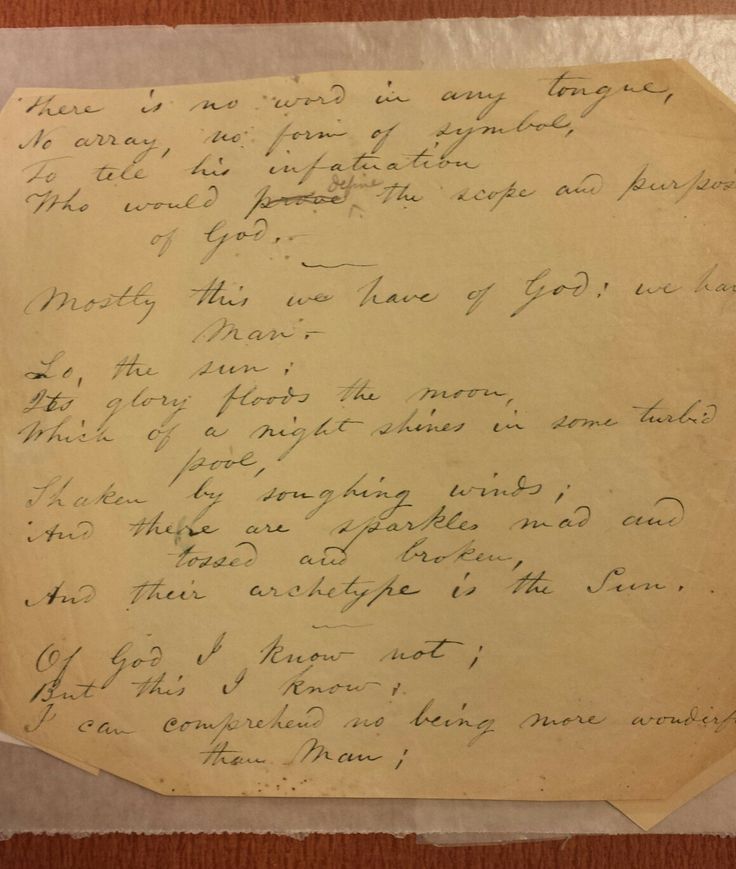 There is no word in any tongue,
No array, no form of symbol,
To tell his infatuation
define
Who would prove the scope and purpos
of God.—
Mostly this we have of God: we hav
Man.—
Lo, the sun:
Its glory floods the moon,
Which of a night shines in some turbid
pool,
Shaken by soughing winds;
And there are sparkles mad and
tossed and broken,
And their archetype is the Sun.
Of God I know not;
But this I know:
I can comprehend no being more wonderf
than Man;